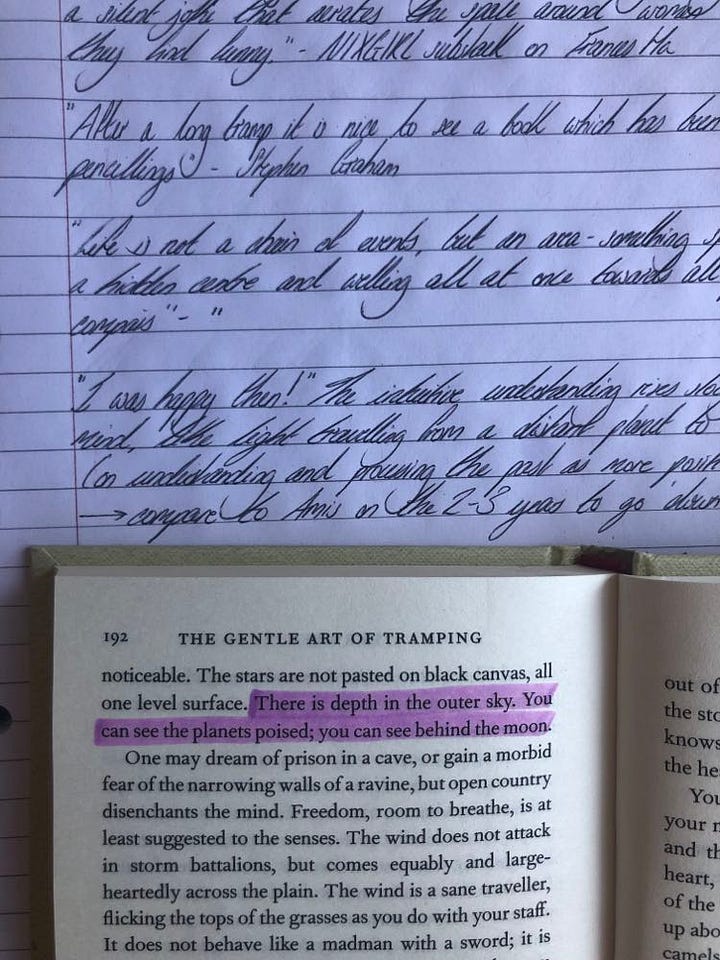 a silent joke that aerates the space around women
they find funny." - NIXGIRL substack on Frances Ha
"After a long tramp it is nice to see a book which has been
pencillings" - Stephen Graham
"Life is not a chain of events, but an area-something
a hidden centre and welling all at once towards all
compass" - "
"I was happy then!" The intuitive understanding rises
mind, like light travelling from a distant planet to
(on understanding and processing the past as more
→ compare to Amis on the 2-3 years to go down
192 THE GENTLE ART OF TRAMPING
noticeable. The stars are not pasted on black canvas, all
one level surface. There is depth in the outer sky. You
can see the planets poised; you can see behind the moon.
One may dream of prison in a cave, or gain a morbid
fear of the narrowing walls of a ravine, but open country
disenchants the mind. Freedom, room to breathe, is at
least suggested to the senses. The wind does not attack
in storm battalions, but comes equably and large-
heartedly across the plain. The wind is a sane traveller,
flicking the tops of the grasses as you do with your staff.
It does not behave like a madman with a sword; it is
out of
the sto
knows
the he
You
your
and th
heart,
of the
up abo
camels